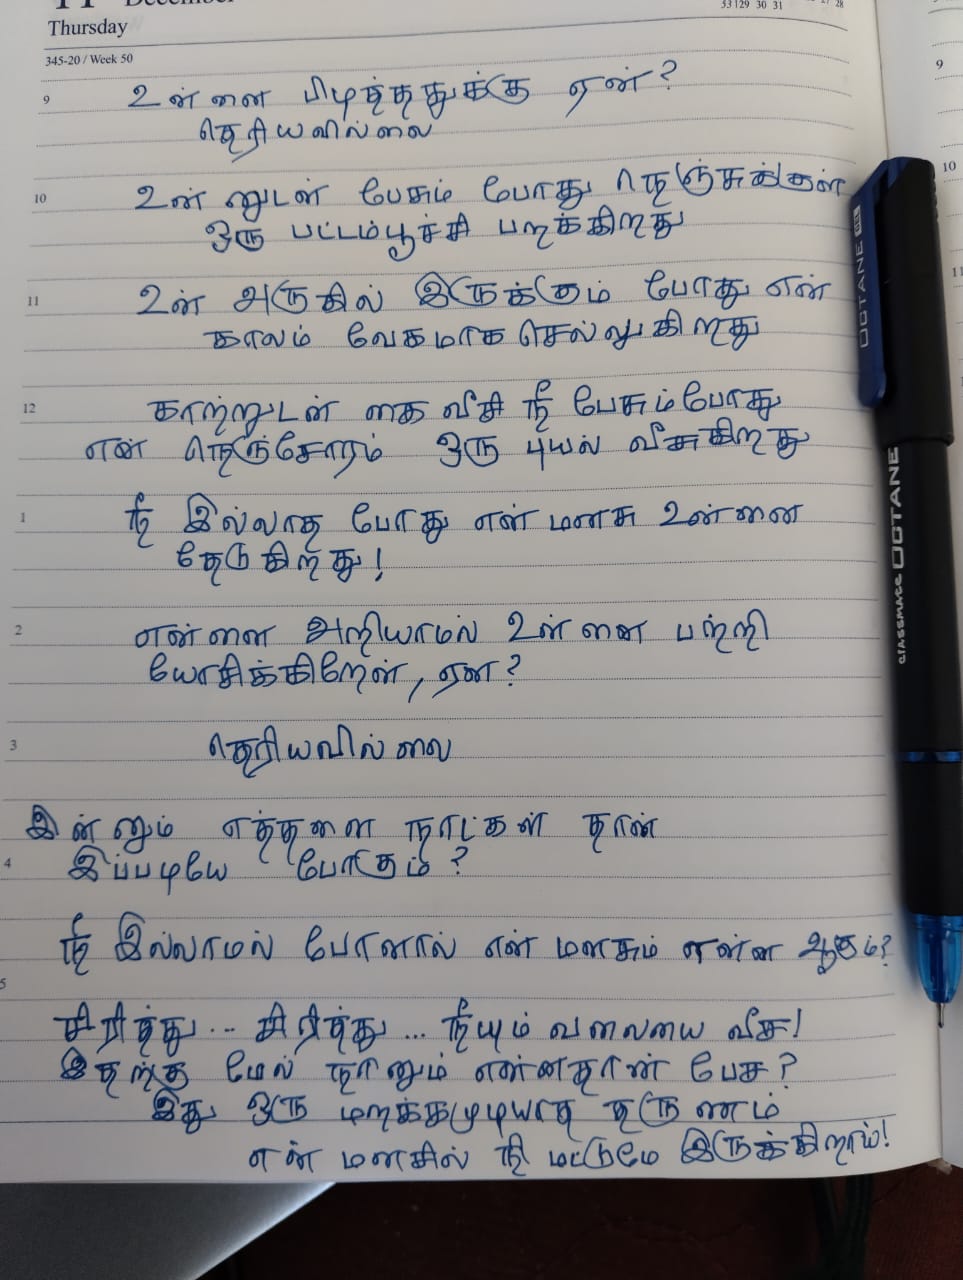 11 December
Thursday
345-20 / Week 50
33 129 30 31
28
9 உன்னை பிடித்ததுக்கு ஏன்?
தெரியவில்லை
10 உன்னுடன் பேசும் போது நெஞ்சுக்குள்
ஒரு பட்டம்பூச்சி பறக்கிறது
11 உன் அருகில் இருக்கும் போது என்
காலம் வேகமாக செல்லுகிறது
12 காற்றுடன் கை வீசி நீ பேசும்போது
என் நெஞ்சோரம் ஒரு புயல் வீசுகிறது
1 நீ இல்லாத போது என் மனசு உன்னை
தேடுகிறது!
2 என்னை அறியாமல் உன்னை பற்றி
யோசிக்கிறேன், ஏன?
3 தெரியவில்லை
இன்னும் எத்தனை நாட்கள் தான்
4 இப்படியே போகும்?
நீ இல்லாமல் போனால் என் மனசும் என்ன ஆகும்?
5
சிரித்து... சிரித்து... நீயும் வலையை வீச!
இதற்கு மேல் நானும் என்னதான் பேச?
இது ஒரு மறக்கமுடியாத தருணம்
என் மனசில் நீ மட்டுமே இருக்கிறாய்!
9
10
11
OCTANE GEL
classmate OCTANE